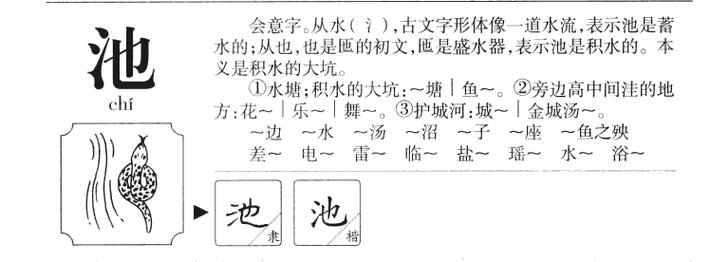 池
chí
会意字。从水(氵),古文字形体像一道水流,表示池是蓄
水的;从也,也是匜的初文,匜是盛水器,表示池是积水的。本
义是积水的大坑。
①水塘;积水的大坑:～塘｜鱼～。②旁边高中间洼的地
方:花～｜乐～｜舞～。③护城河:城～｜金城汤～。
～边 ～水 ～汤 ～沼 ～子 ～座 ～鱼之殃
差～ 电～ 雷～ 临～ 盐～ 瑶～ 水～ 浴～
池 隶
池 楷